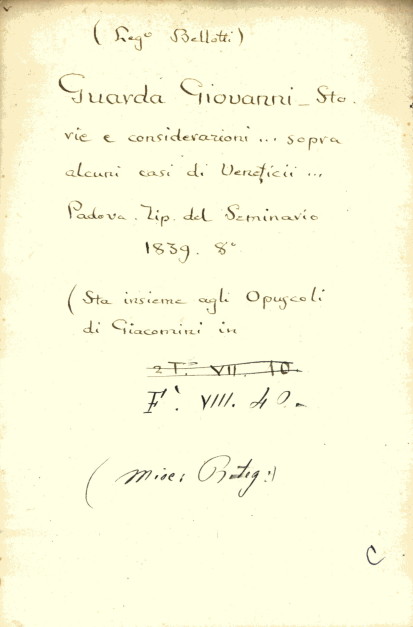 ( Lego Bellotti)
Guarda Giovanni _ Sto.
rie e considerazioni ... sopra
alcuni casi di Veneficii ...
Padova. Tip. del Seminario
1839. 8°
(Sta insieme agli Opuscoli
di Giacomini in
2 T. VII. 10.
F'. VIII. 40.
(
C